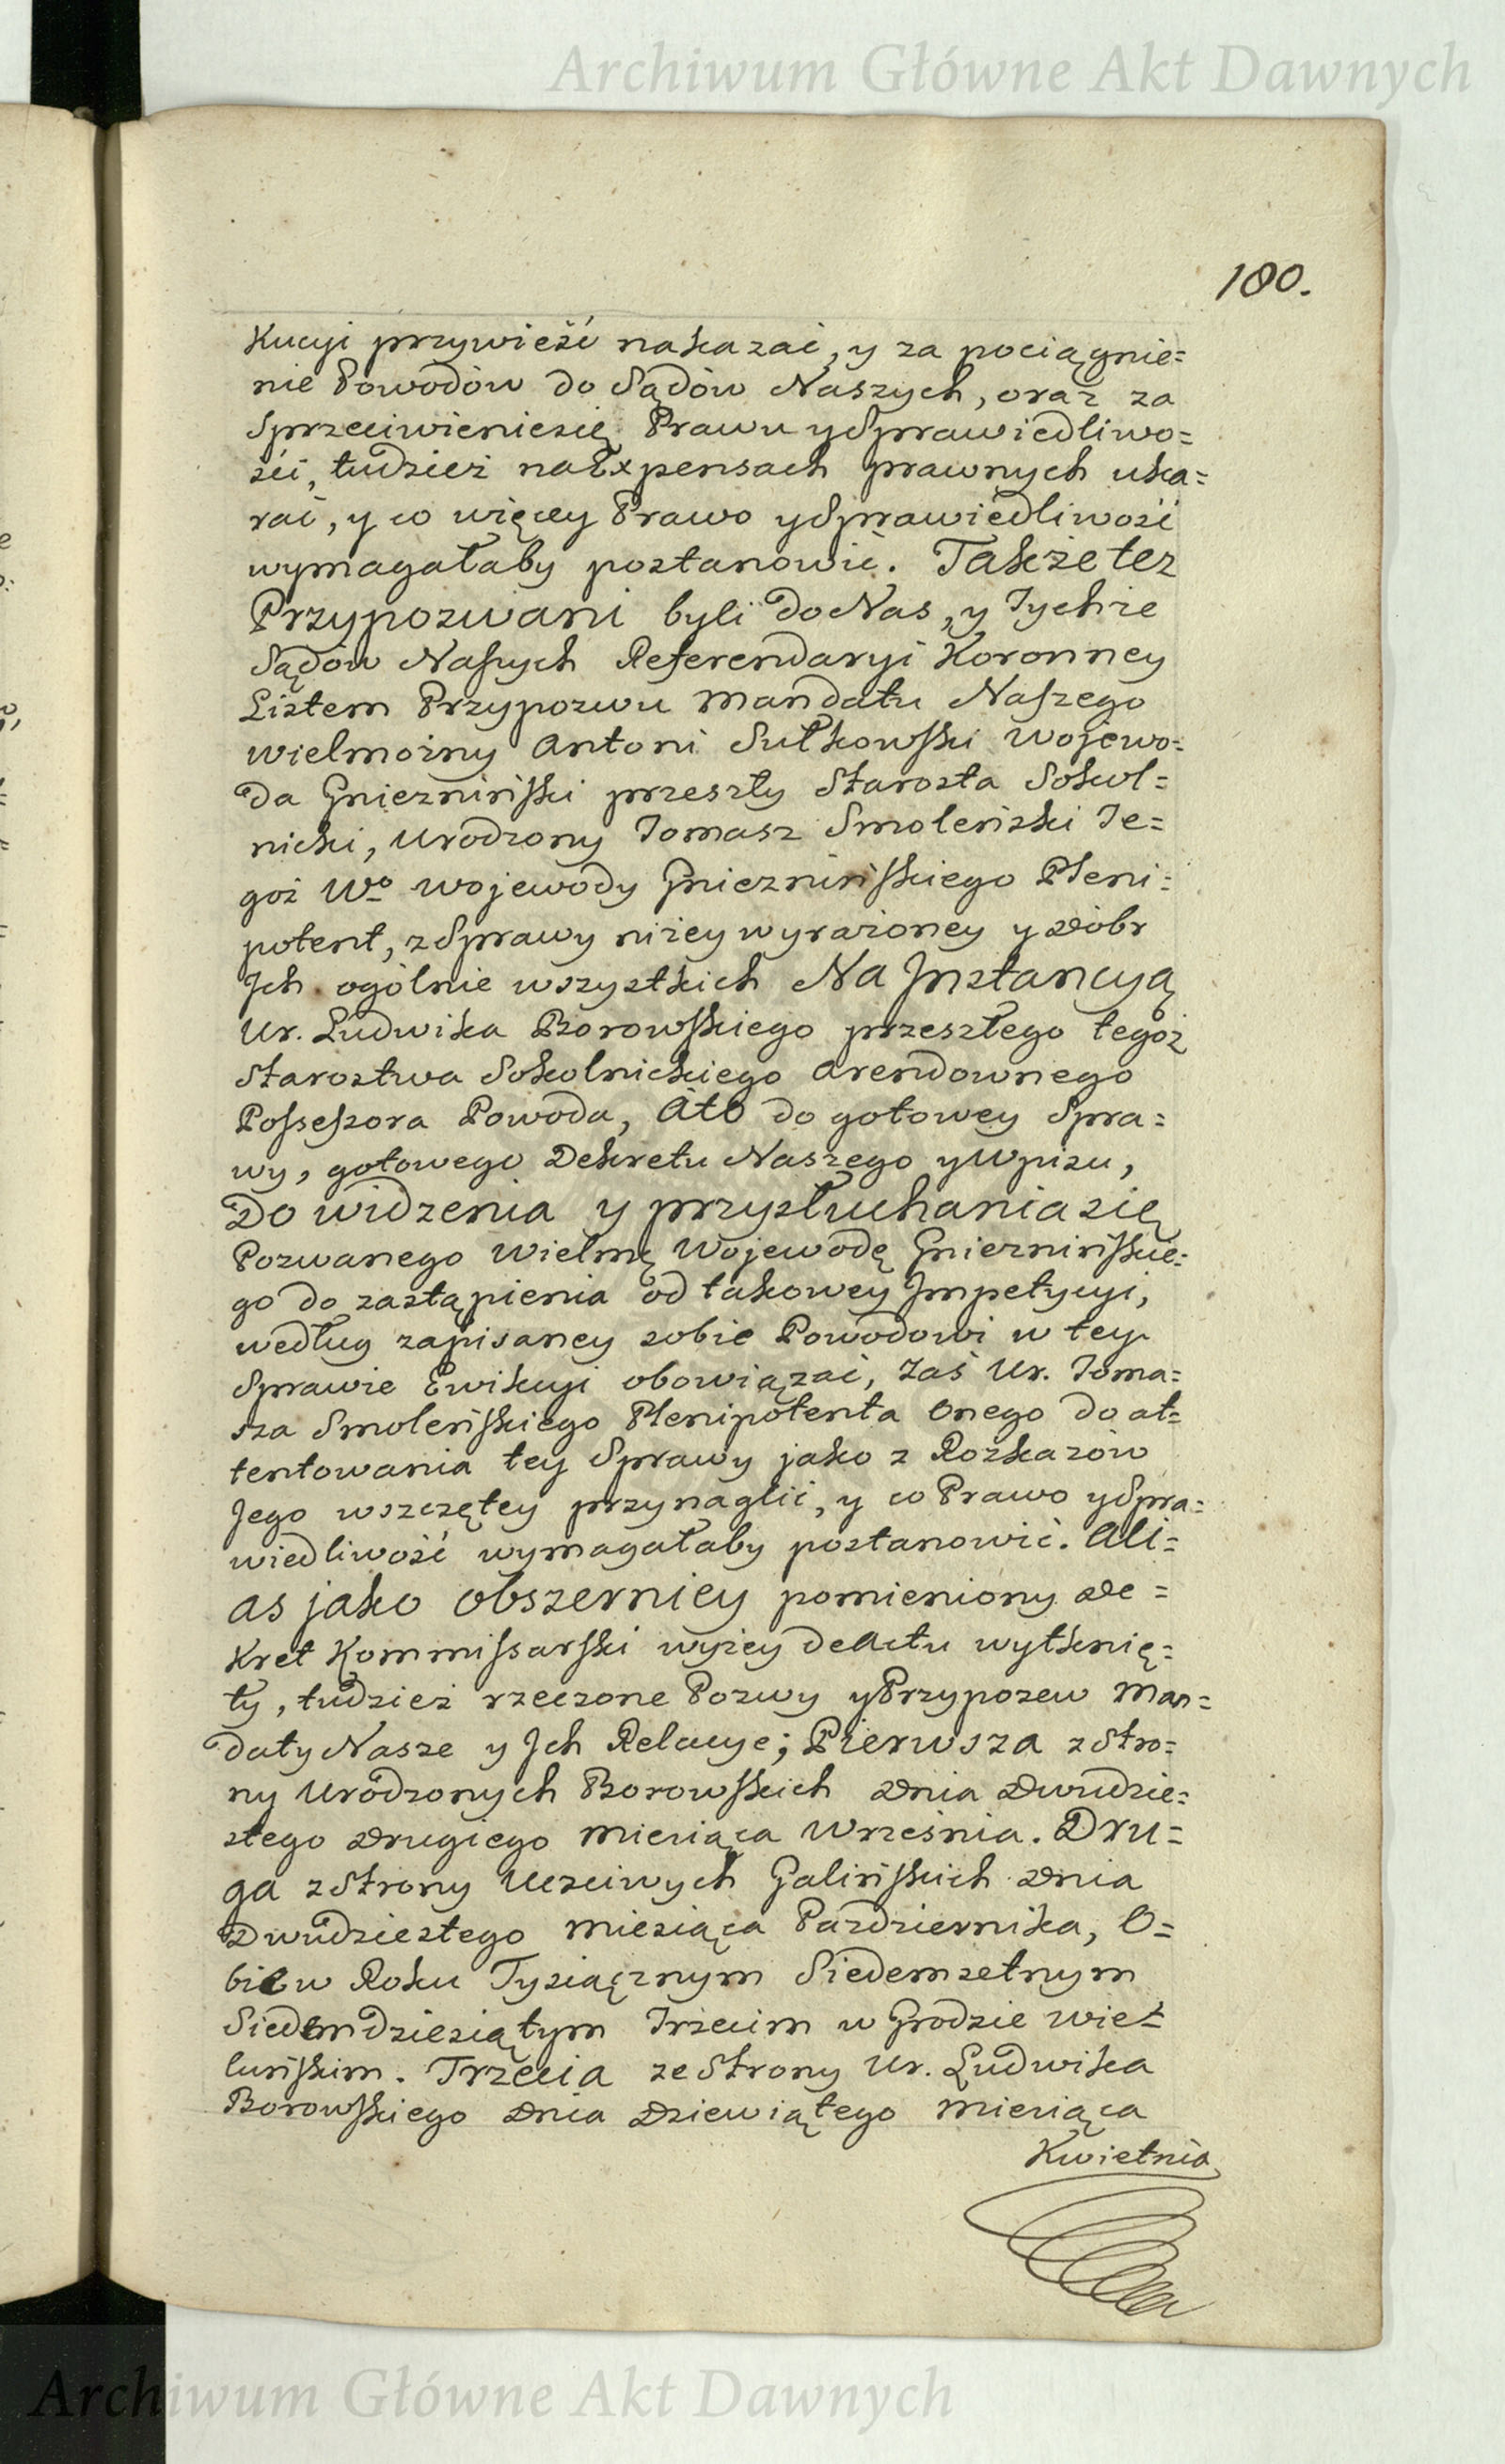 Archiwum Główne Akt Dawnych
180.
Kucyi przywieść nakazać, y za pociągnie=
nie Powodów do Sądów Naszych, oraz za
Sprzeciwieniesię Prawu ySprawiedliwo=
ści, tudzież naExpensach prawnych uka=
rać, y co więcey Prawo ySprawiedliwość
wymagałaby postanowić. Takżetez
Przypozwani byli doNas, y Tychże
Sądów Naszych Referendaryi Koronney
Listem Przypozwu Mandatu Naszego
Wielmożny Antoni Sułkowski Wojewo=
da Gnieźniński przeszły Starosta Sokol=
nicki, Urodzony Tomasz Smoleński Te=
goż Wo Wojewody Gnieźnińskiego Pleni=
potent, zSprawy niżey wyrażoney y Dóbr
Ich ogólnie wszystkich Na Instancyą
Ur. Ludwika Borowskiego przeszłego tegoż
Starostwa Sokolnickiego Arendownego
Possessora Powoda, Ato do gotowey Spra=
wy, gotowego Dekretu Naszego yWpisu,
Do widzenia y przysłuchaniasię
Pozwanego Wielmę Wojewodę Gnieźnińskie=
go do zastąpienia od takowey Impetycyi,
według zapisaney sobie Powodowi w tey
Sprawie Ewikcyi obowiązać, Zaś Ur. Toma=
sza Smoleńskiego Plenipotenta Onego do at=
tentowania tey Sprawy jako z Rozkazów
Jego wszczętey przynaglić, y co Prawo ySpra=
wiedliwość wymagałaby postanowić. Ali=
as jako obszerniey pomieniony De=
kret Kommissarski wyżey deActu wytknię=
ty, tudzież rzeczone Pozwy yPrzypozew Man=
daty Nasze y Ich Relacye; Pierwsza zStro=
ny Urodzonych Borowskich Dnia Dwudzie=
stego Drugiego Miesiąca Września. Dru=
ga zStrony Uczciwych Galińskich Dnia
Dwudziestego Miesiąca Pazdziernika, O=
bie w Roku Tysiącznym Siedemsetnym
Siedmdziesiątym Trzecim w Grodzie Wie=
luńskim. Trzecia ze Strony Ur. Ludwika
Borowskiego Dnia Dziewiątego Miesiąca
Kwietnia
Archiwum Główne Akt Dawnych